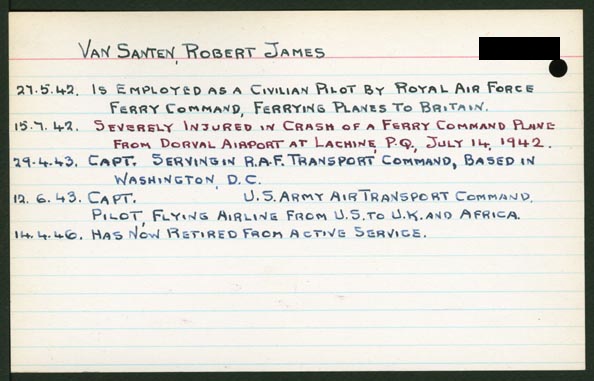 VAN SANTEN, ROBERT JAMES
27.5.42. IS EMPLOYED AS A CIVILIAN PILOT BY ROYAL AIR FORCE
FERRY COMMAND, FERRYING PLANES TO BRITAIN.
15.7.42. SEVERELY INJURED IN CRASH OF A FERRY COMMAND PLANE
FROM DORVAL AIRPORT AT LACHINE, P.Q., JULY 14, 1942.
29.4.43. CAPT. SERVING IN R.A.F. TRANSPORT COMMAND, BASED IN
WASHINGTON, D.C.
12.6.43. CAPT. U.S. ARMY AIR TRANSPORT COMMAND.
PILOT, FLYING AIRLINE FROM U.S. TO U.K. AND AFRICA.
14.4.46. HAS NOW RETIRED FROM ACTIVE SERVICE.